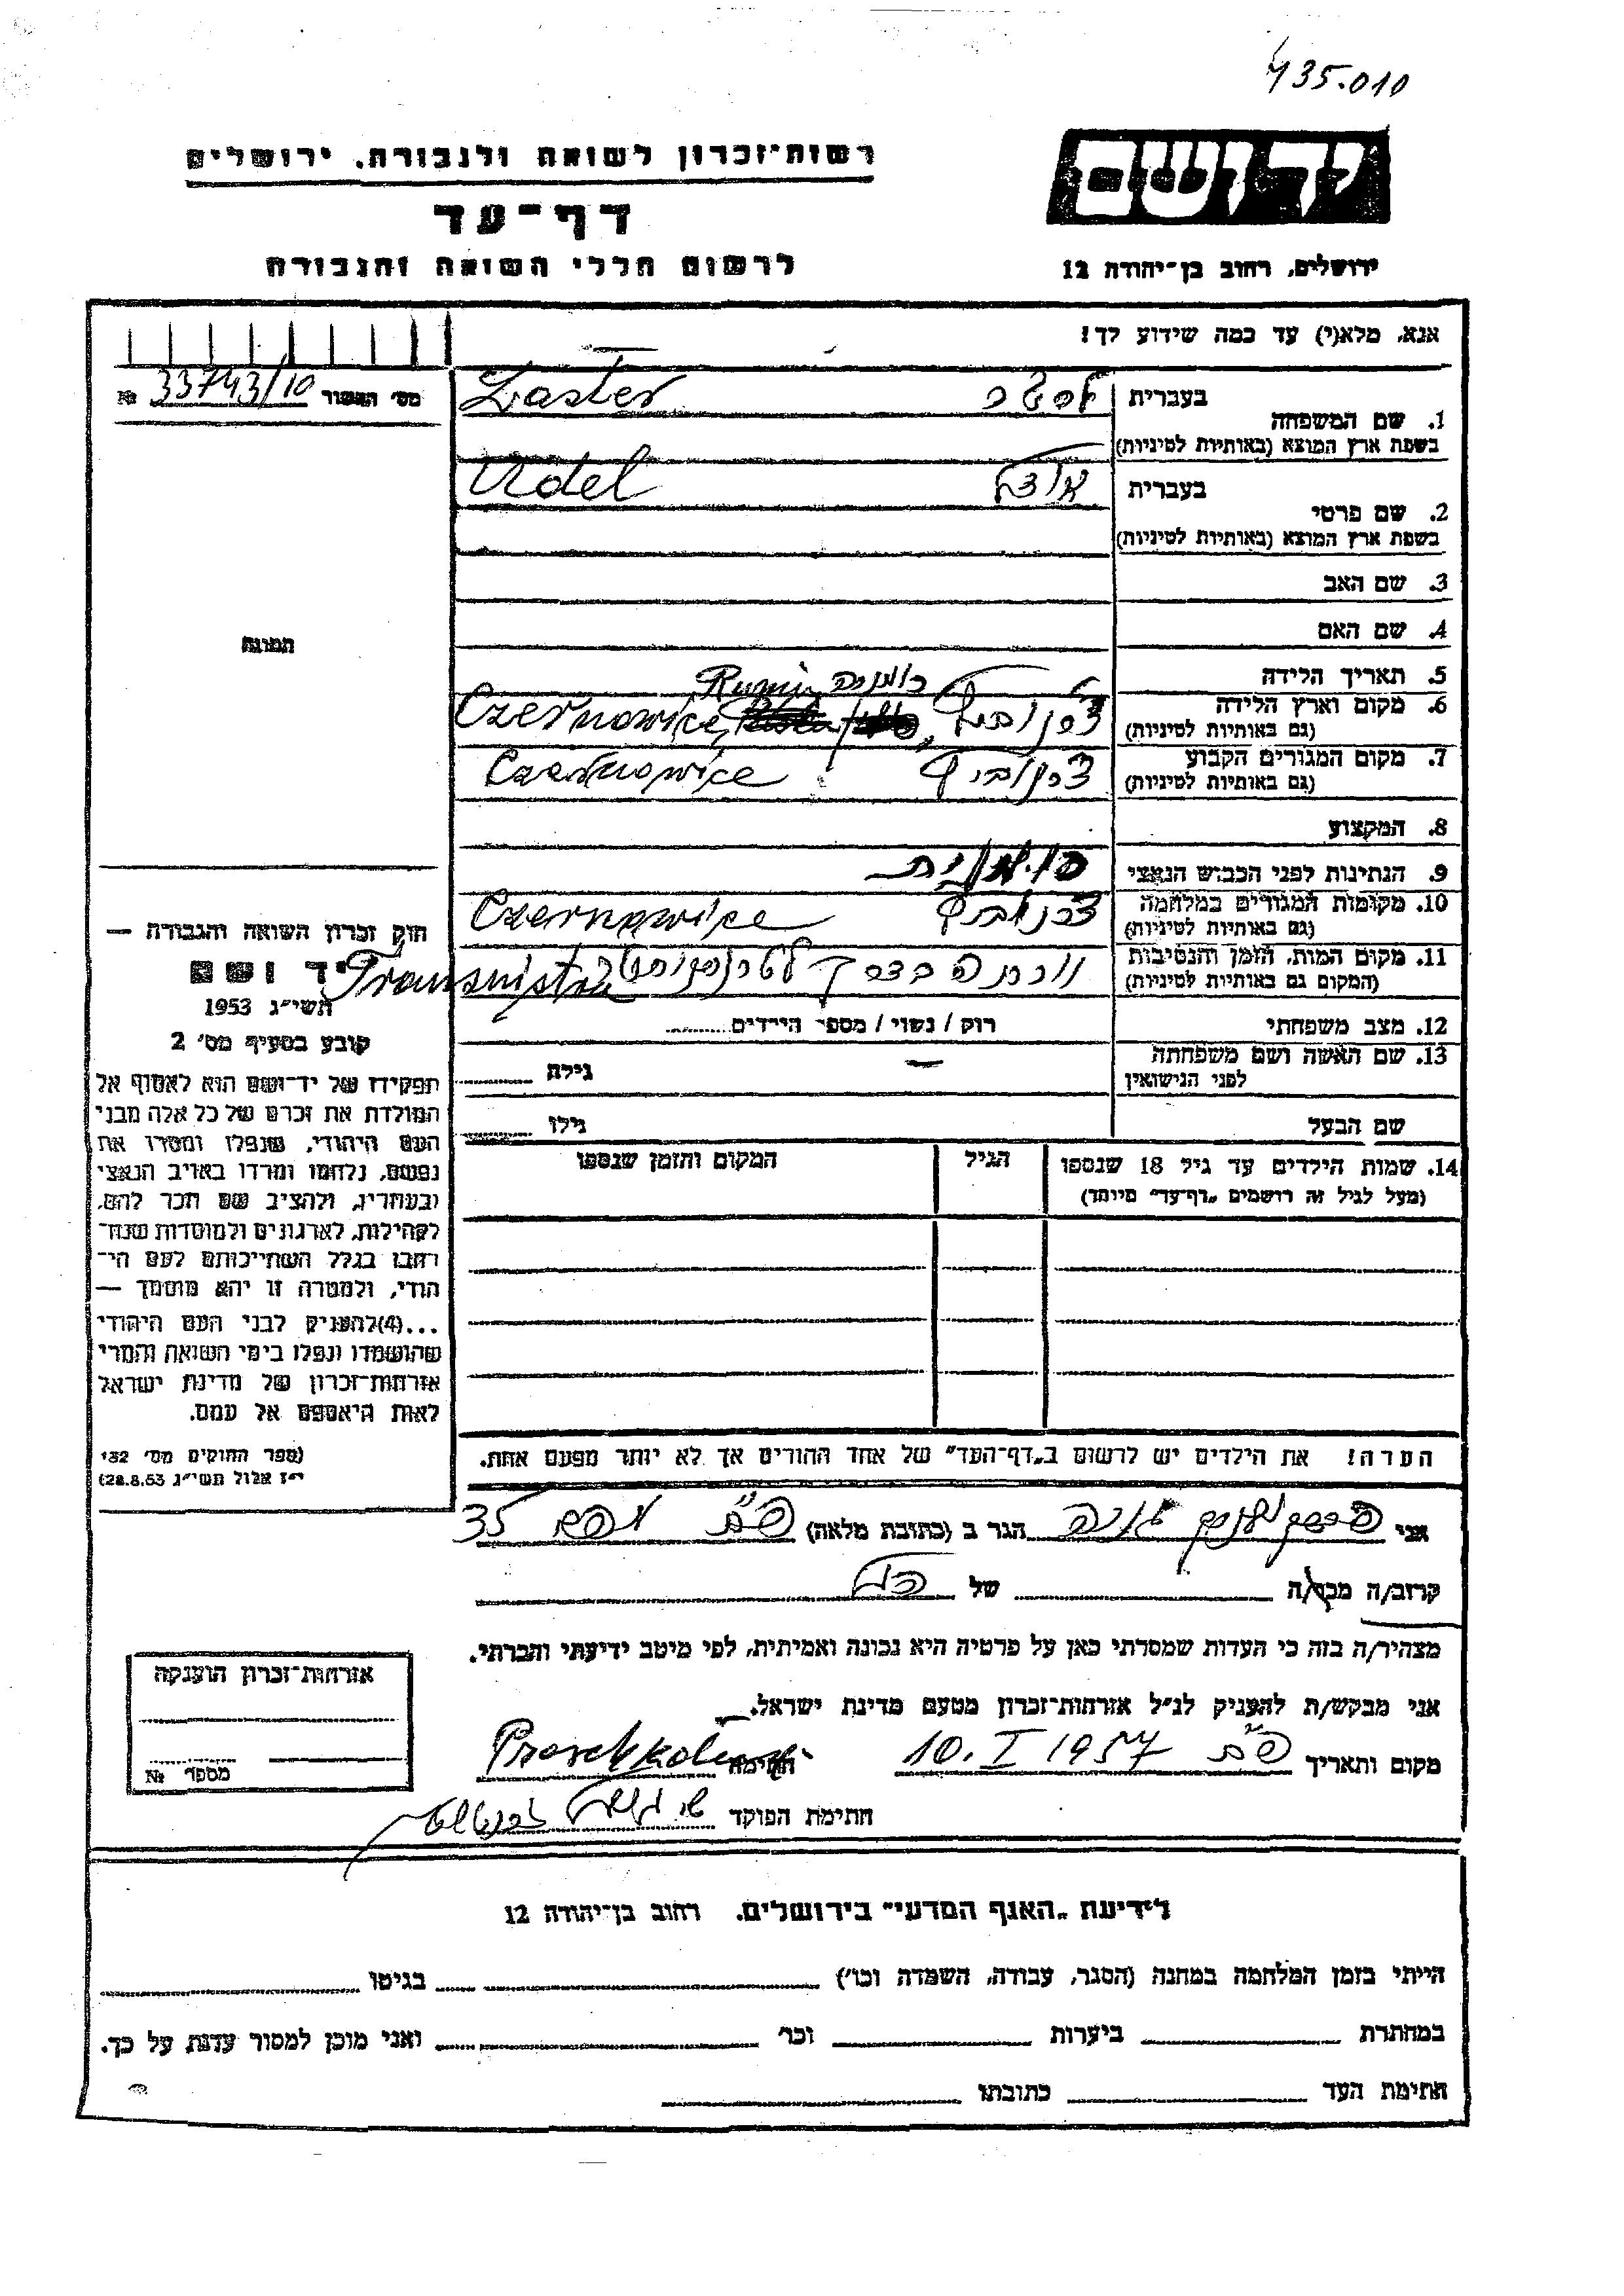 435.010
יד ושם
רשות־זכרון לשואה ולגבורה, ירושלים
דף־עד
לרשום חללי השואה והגבורה
ירושלים, רחוב בן־יהודה 12
אנא, מלא(י) עד כמה שידוע לך!
מס׳ האשור 33743/10 №
1. שם המשפחה
בעברית לסטר
בשפת ארץ המוצא (באותיות לטיניות) Laster
2. שם פרטי
בעברית אודל
בשפת ארץ המוצא (באותיות לטיניות) Udel
3. שם האב
4. שם האם
5. תאריך הלידה
6. מקום וארץ הלידה
(גם באותיות לטיניות)
רומניה
צרנוביץ, Czernowice,
7. מקום המגורים הקבוע
(גם באותיות לטיניות)
צרנוביץ Czernowice
8. המקצוע
9. הנתינות לפני הכבוש הנאצי
10. מקומות המגורים במלחמה
(גם באותיות לטיניות)
צרנוביץ Czernowice
11. מקום המות, הזמן והנסיבות
(המקום גם באותיות לטיניות)
בדרך
12. מצב משפחתי
רוק / נשוי / מספר הילדים
13. שם האשה ושם משפחתה
לפני הנישואין
— גילה
שם הבעל
גילו
14. שמות הילדים עד גיל 18 שנספו
(מעל לגיל זה רושמים „דף־עד״ מיוחד)
הגיל
המקום והזמן שנספו
הערה! את הילדים יש לרשום ב„דף־העד״ של אחד ההורים אך לא יותר מפעם אחת.
תמונה
חוק זכרון השואה והגבורה —
יד ושם
תשי״ג 1953
קובע בסעיף מס׳ 2
תפקידו של יד־ושם הוא לאסוף אל
המולדת את זכרם של כל אלה מבני
העם היהודי, שנפלו ומסרו את
נפשם, נלחמו ומרדו באויב הנאצי
ובעוזריו, ולהציב שם וזכר להם,
לקהילות, לארגונים ולמוסדות שנח־
רבו בגלל השתייכותם לעם הי־
הודי, ולמטרה זו יהא מוסמך —
...(4)להעניק לבני העם היהודי
שהושמדו ונפלו בימי השואה והמרי
אזרחות־זכרון של מדינת ישראל
לאות היאספם אל עמם.
(ספר החוקים מס׳ 132
י״ז אלול תשי״ג 28.8.53)
אני הגר ב (כתובת מלאה) 35
קרוב/ה מכר/ה של
מצהיר/ה בזה כי העדות שמסרתי כאן על פרטיה היא נכונה ואמיתית, לפי מיטב ידיעתי והכרתי.
אני מבקש/ת להעניק לנ״ל אזרחות־זכרון מטעם מדינת ישראל.
מקום ותאריך 10.I 1957 חתימה
חתימת הפוקד
אזרחות־זכרון הוענקה
מספר №
לידיעת „האגף המדעי״ בירושלים, רחוב בן־יהודה 12
הייתי בזמן המלחמה במחנה (הסגר, עבודה, השמדה וכו׳) בגיטו
במחתרת ביערות וכו׳ ואני מוכן למסור עדות על כך.
חתימת העד כתובתו